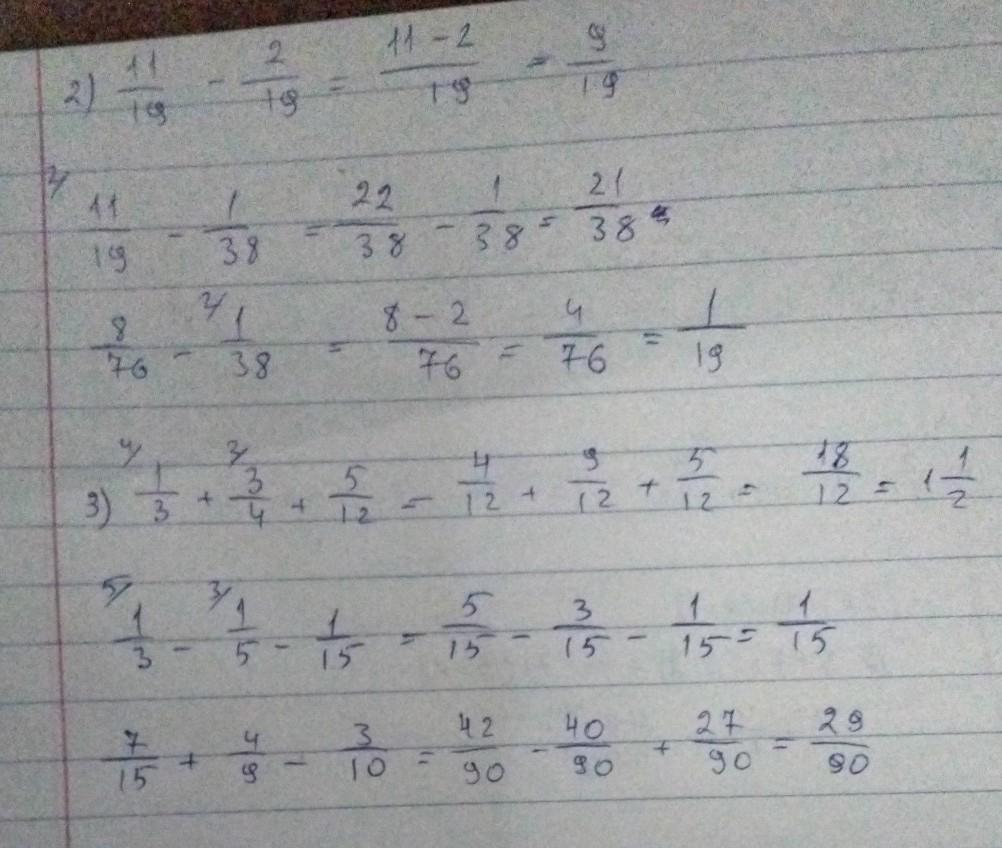 2) 11/19 - 2/19 = (11 - 2)/19 = 9/19
2/ 11/19 - 1/38 = 22/38 - 1/38 = 21/38
8/76 - 2/ 1/38 = (8 - 2)/76 = 4/76 = 1/19
3) 4/ 1/3 + 3/ 3/4 + 5/12 = 4/12 + 9/12 + 5/12 = 18/12 = 1 1/2
5/ 1/3 - 3/ 1/5 - 1/15 = 5/15 - 3/15 - 1/15 = 1/15
7/15 + 4/9 - 3/10 = 42/90 - 40/90 + 27/90 = 29/90